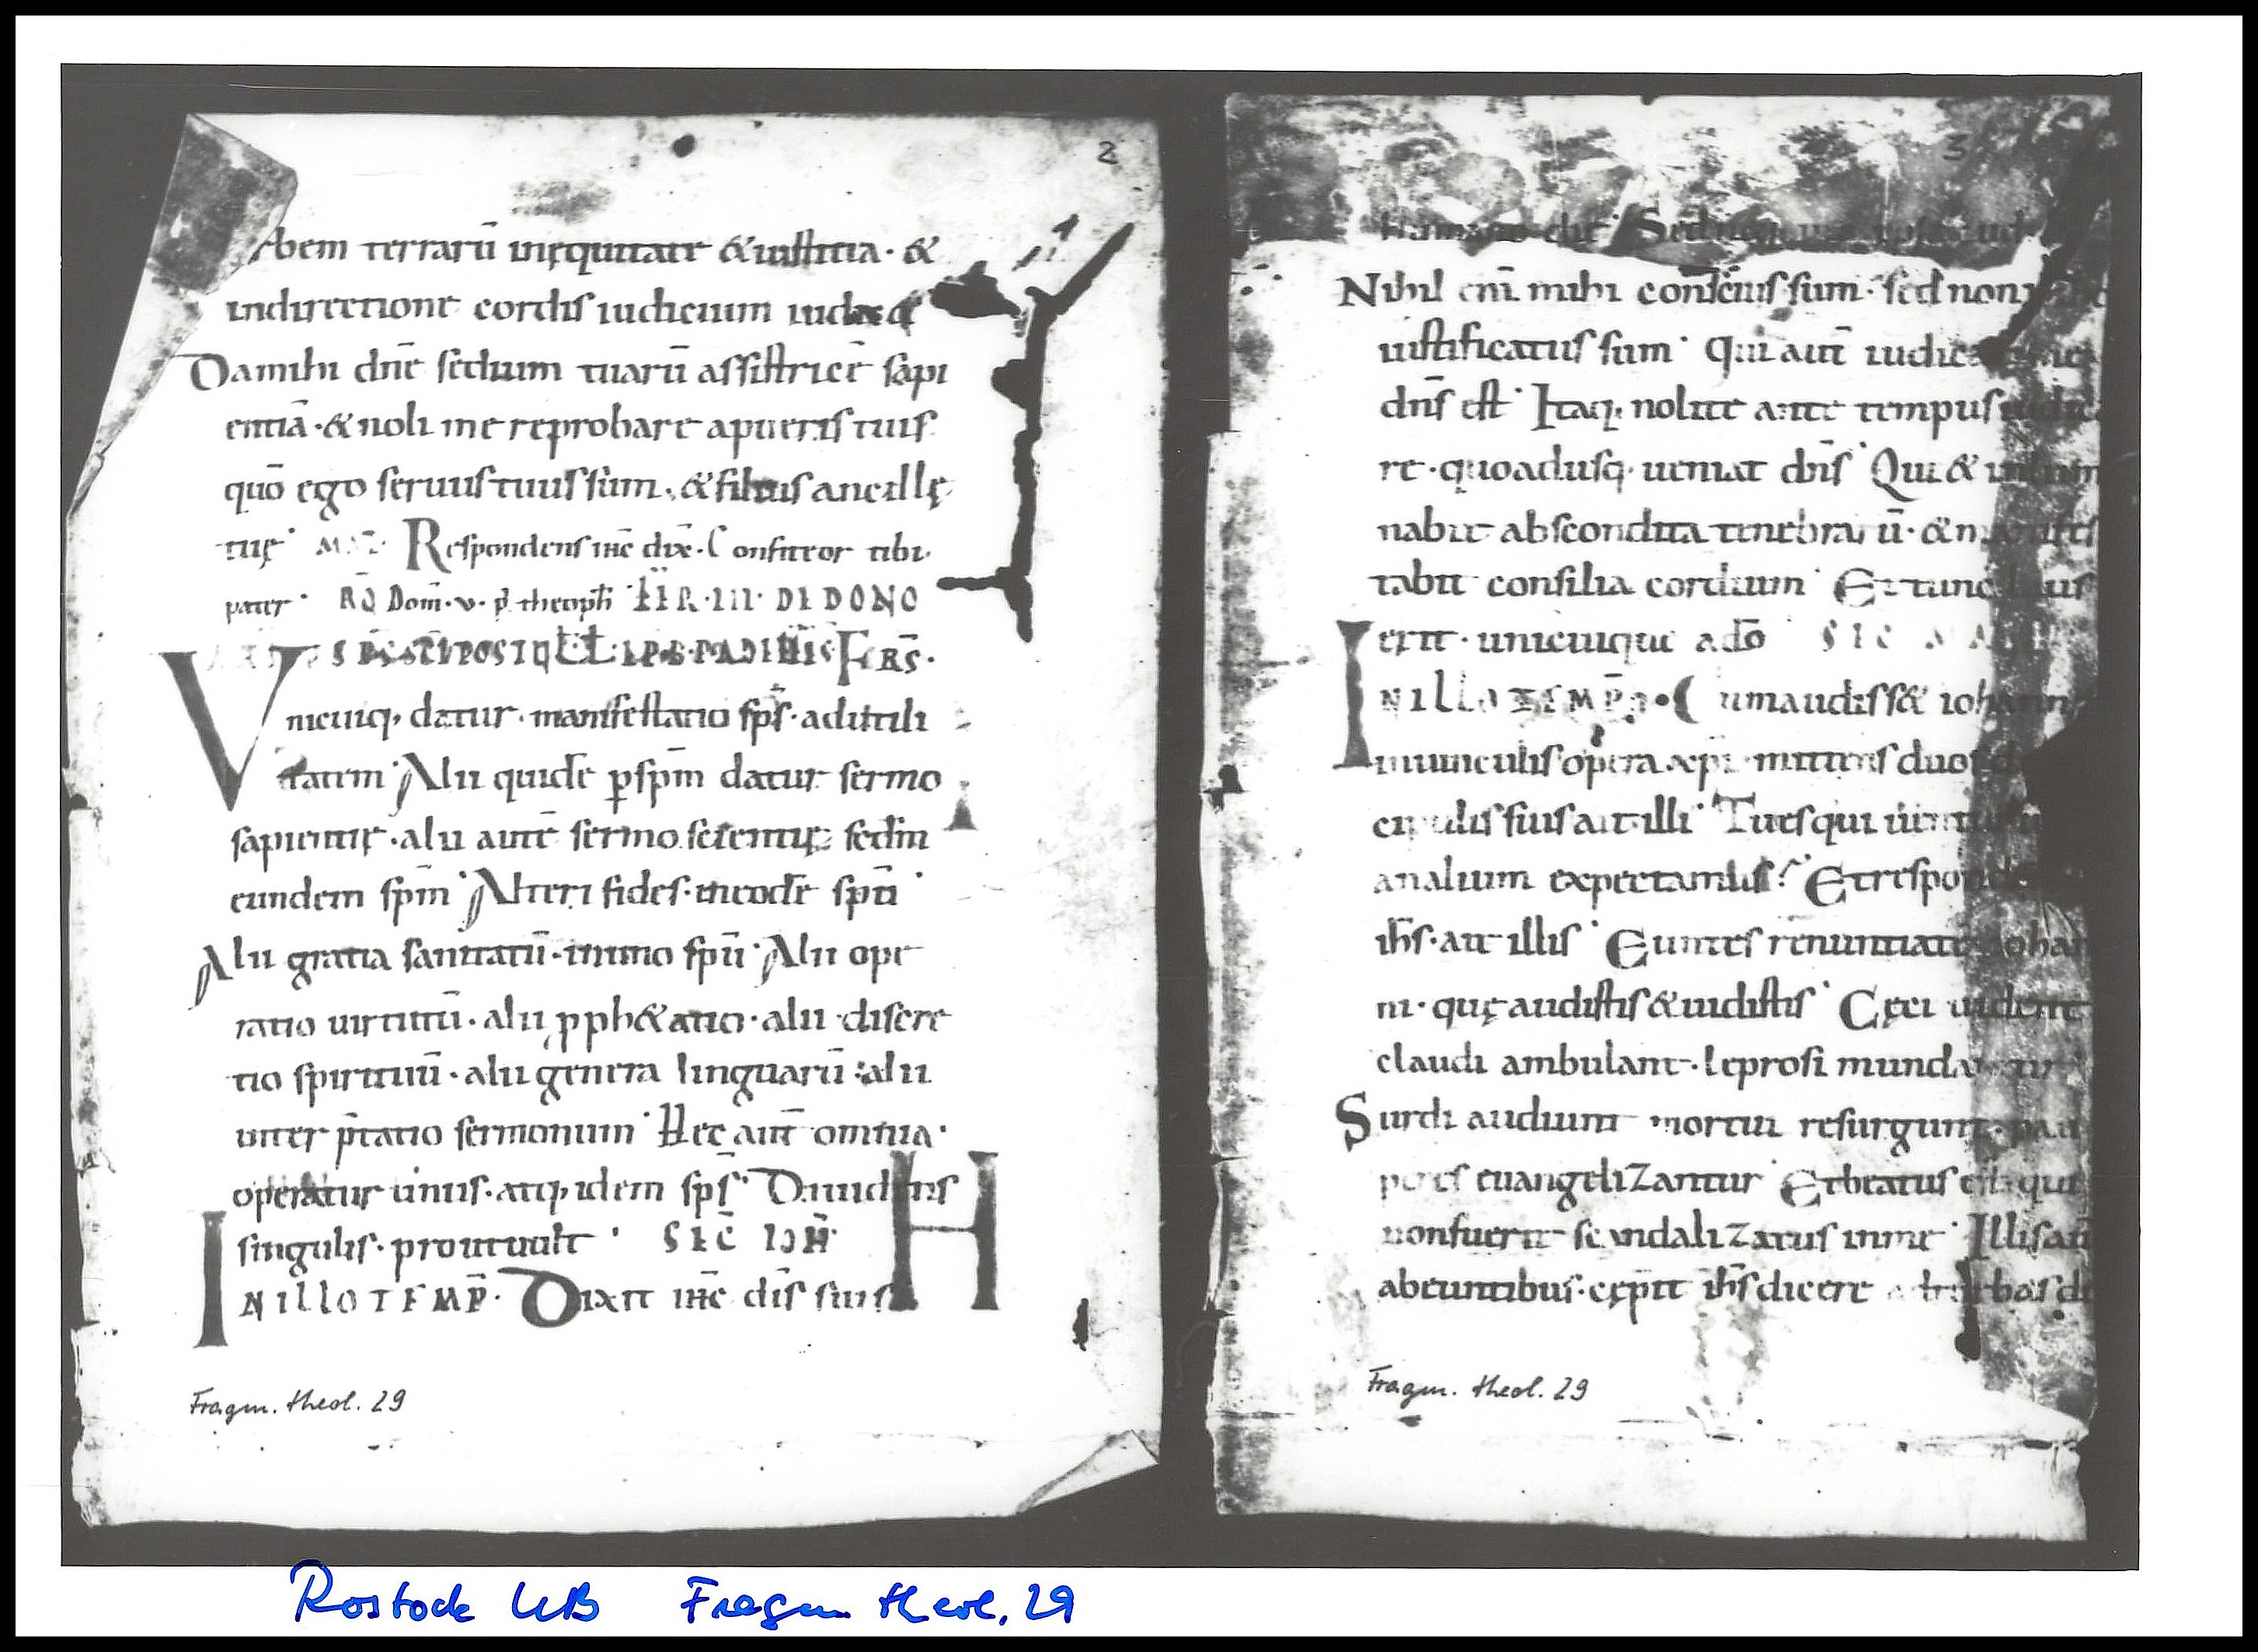 2
bem terrarū inęquitate & iustitia · &
indirectione cordis iudicium
Damihi dnē sedium tuarū assistricē sapi
entiā · & noli me reprobare apueris tuis
quō ego seruus tuus sum · & filius ancillę
tuę · Respondens ihc dix̄ · Confiteor tibi
pater · Dom̄ · v · p̄ theoph̄ · III · DE DONO
FRS̄ ·
Vnicuiq; datur · manifestatio sp̄s · adutili
tatem · Alii quidē p sp̄m datur sermo
sapientię · alii autē sermo scientię sedm̄
eundem sp̄m · Alteri fides · ineodē sp̄u ·
Alii gratia sanitatū · inuno sp̄u · Alii ope
ratio uirtutū · alii pph&atio · alii discre
tio spirituū · alii genera linguarū · alii
inter p̄tatio sermonum · Hęc aūt omnia ·
operatur unus · atq; idem sp̄s · Diuidens
singulis · prout uult · SEC̄ IOH̄
INILLO TEMP̄ · Dixit ihc̄ dis̄ suis H
Fragm. theol. 29
3
Nihil eni mihi conscius sum · sed non
iustificatus sum · Qui aūt iudicat me
dn̄s est · Itaq; nolite ante tempus iudica
re · quoadusq; ueniat dn̄s · Qui & inlumi
nabit abscondita tenebrarū · & manifes
tabit consilia cordium · Et tunc laus
erit · unicuique ado ·
INILLO TEMP̄R · Cumaudiss& iohann
inuinculis opera xpi · mittens duos d
cipulis suis ait illi · Tu es qui uenturus
analium expectamus? Et respondens
ih̄s · ait illis · Euntes renuntiate iohan
ni · quę audistis & uidistis · Cęci uident
claudi ambulant · leprosi mundantur
Surdi audiunt mortui resurgunt · pau
peres euangelizantur · Et beatus est qui
nonfuerit scandalizatus inme · Illis aū
abeuntibus · cępit ih̄s dicere adturbas de
Fragm. theol. 29
Rostock UB Fragm. theol. 29